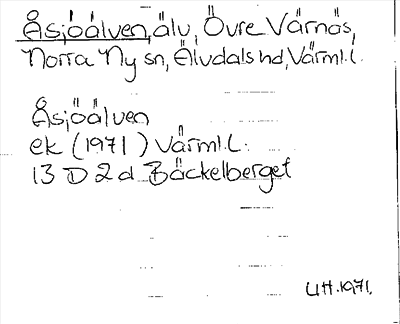 Åsjöälven, älv, Övre Värnäs,
Norra Ny sn, Älvdals hd, Värml. l.
Åsjöälven
ek (1971) Värml. l.
13 D 2 d Bäckelberget
UH. 1971.